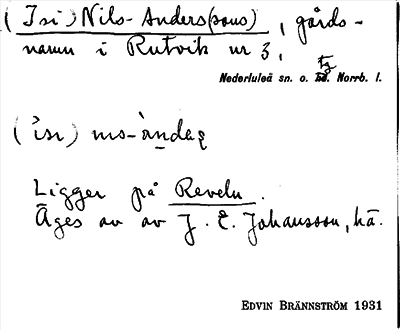 (Isi) Nils-Anders(sons), gårds-
namn i Rutvik nr 3,
Fg
Nederluleå sn. o. hd. Norrb. l.
(i̓sı) nıs-àndaʂ
Ligger på Reveln.
Äges av av J. E. Johansson, hä.
EDVIN BRÄNNSTRÖM 1931